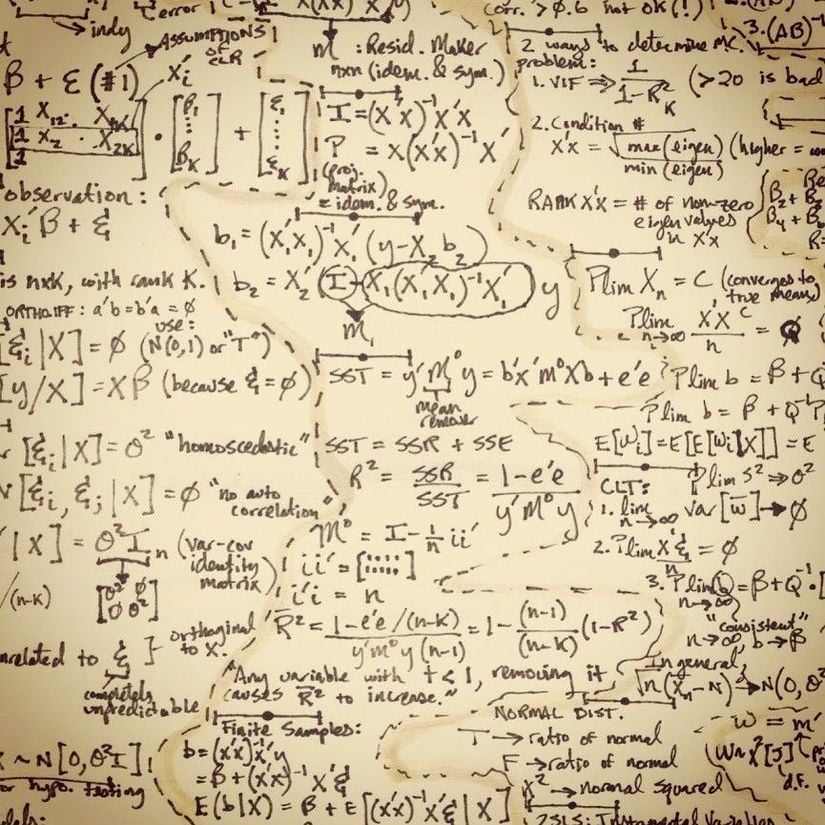 error
indy
ASSUMPTIONS OF CLR
β + ε (#1)
Xi'
observation:
Xi'β + ε
is nxK, with rank K.
ORTHO. IFF: a'b=b'a=∅
use:
[εi|X] = ∅ (N(0,1) or "T")
[y/X] = Xβ (because ε=∅)
[εi|X] = σ² "homoscedastic"
[εi, εj|X] = ∅ "no auto correlation"
|X] = σ²In (var-cov identity matrix)
[σ² ∅
∅ σ²]
/(n-K)
related to ε
orthoginal to X.
completely unpredictable
~ N[0, σ²I]
hypo. testing
M : Resid. Maker
nxn (idem. & sym.)
I = (X'X)⁻¹X'X
P = X(X'X)⁻¹X'
(proj. matrix) = idem. & sym.
b₁ = (X₁'X₁)⁻¹X₁'(y-X₂b₂)
b₂ = X₂'(I-X₁(X₁'X₁)⁻¹X₁')y
M₁
SST = y'M⁰y = b'X'M⁰Xb + e'e
mean remover
SST = SSR + SSE
R² = SSR/SST = 1-e'e/y'M⁰y
M⁰ = I - 1/n ii'
ii' = [::::]
i'i = n
R̄² = 1-e'e/(n-K) / y'M⁰y(n-1) = 1-(n-1)/(n-K)(1-R²)
"Any variable with t<1, removing it causes R̄² to increase."
Finite Samples:
b=(X'X)⁻¹X'y
=β+(X'X)⁻¹X'ε
E(b|X) = β + E[(X'X)⁻¹X'ε|X]
corr. > 0.6 not ok (!)
3. (AB)⁻¹
2 ways to determine MC problem:
1. VIF ⇒ 1/1-R²K (>20 is bad
2. Condition #
X'X = √max(eigen)/min(eigen) (higher =
RANK X'X = # of non-zero eigenvalues in X'X
Plim Xn = C (converges to true mean)
Plim n→∞ X'X/n = Q
Plim b = β + Q
Plim b = β + Q⁻¹P
E[Wi]=E[E[Wi|X]] = E
Plim S² → σ²
CLT:
1. lim n→∞ Var[w̄] → ∅
2. Plim X'ε/n = ∅
3. Plim n→∞ = β+Q⁻¹·[
"consistent"
n→∞, b→β
In general,
√n(X̄n-N) → N(0, σ²
NORMAL DIST.
T → ratio of normal
F → ratio of normal
X² → normal squared
W = m'
W~X²[J]
d.f.
2SLS: Instrumental Variables